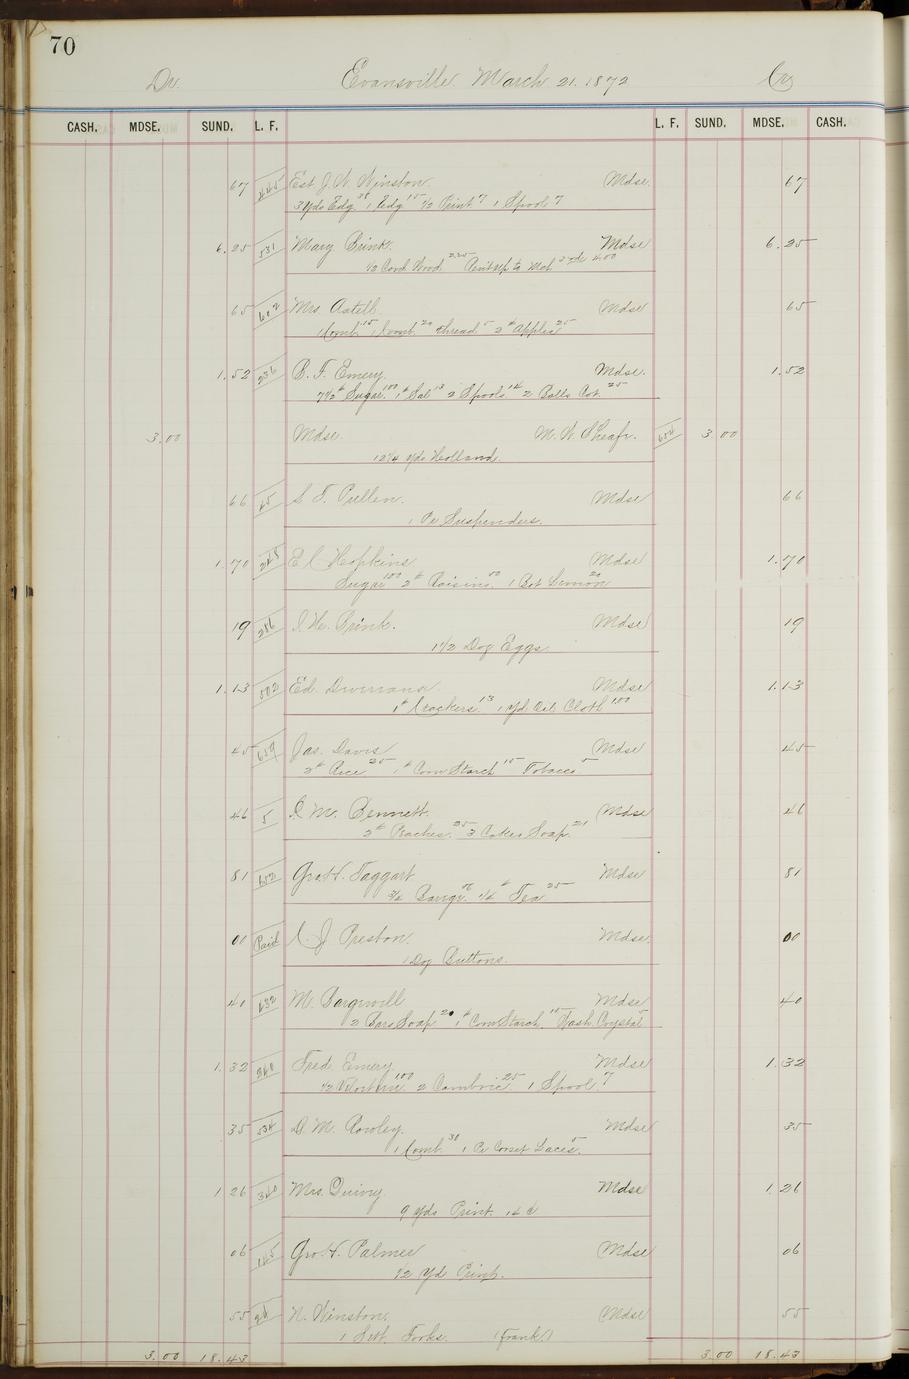 70
Dr. Evansville March 21. 1872 Cr
CASH. MDSE. SUND. L. F. L. F. SUND. MDSE. CASH.
67 445 Est J. W. Winston. Mdse. 67
3 Yds Edg 38 1 Edg 15 1/2 Print 7 1 Spool 7
6.25 531 Mary Brink. Mdse 6.25
1/2 Cord Wood 225 Rent up to Mch 4.00
65 602 Mrs. Mdse 65
1 Comb 15 1 Comb 20 Thread 5 2 # Apples 25
1.52 236 B. F. Emery. Mdse. 1.52
7 1/2 # Sugar 100 1 # Sal 13 2 Spools 14 2 Balls Cot. 25
3.00 Mdse. M. W. 604 3.00
12 1/4 Yds Holland.
66 65 S. F. Pullen. Mdse 66
1 Pr Suspenders.
1.70 248 E C Hopkins Mdse 1.70
Sugar 100 2 # Raisins 50 1 Bot Lemon 20
19 286 Brink. Mdse 19
1 1/2 Doz Eggs
1.13 502 Ed. Mdse 1.13
1 # Crackers 13 1 Yd Oil Cloth 100
45 659 Jas. Davis Mdse 45
2 # Rice 25 1 # Corn Starch 15 Tobacco 5
46 5 M. Bennett. Mdse 46
2 # Peaches 25 3 Cakes Soap 21
81 652 Geo H. Taggart Mdse 81
3/4 1/4 # Tea 25
00 Paid Preston. Mdse. 00
1 Doz Buttons.
40 632 M. Mdse 40
2 Bars Soap 20 1 # Corn Starch 15 Wash. Crystal 5
1.32 240 Fred. Emery Mdse 1.32
1/2 100 2 Cambric 25 1 Spool 7
35 534 D. M. Rowley. Mdse 35
1 Comb 30 1 Pr Corset Laces 5
1.26 340 Mrs. Quivey Mdse 1.26
9 Yds Print. 14 ¢
06 145 Geo. H. Palmer Mdse 06
1/2 Yd Print.
55 Winston. Mdse 55
1 Sett Forks. (Frank)
3.00 18.43 3.00 18.43